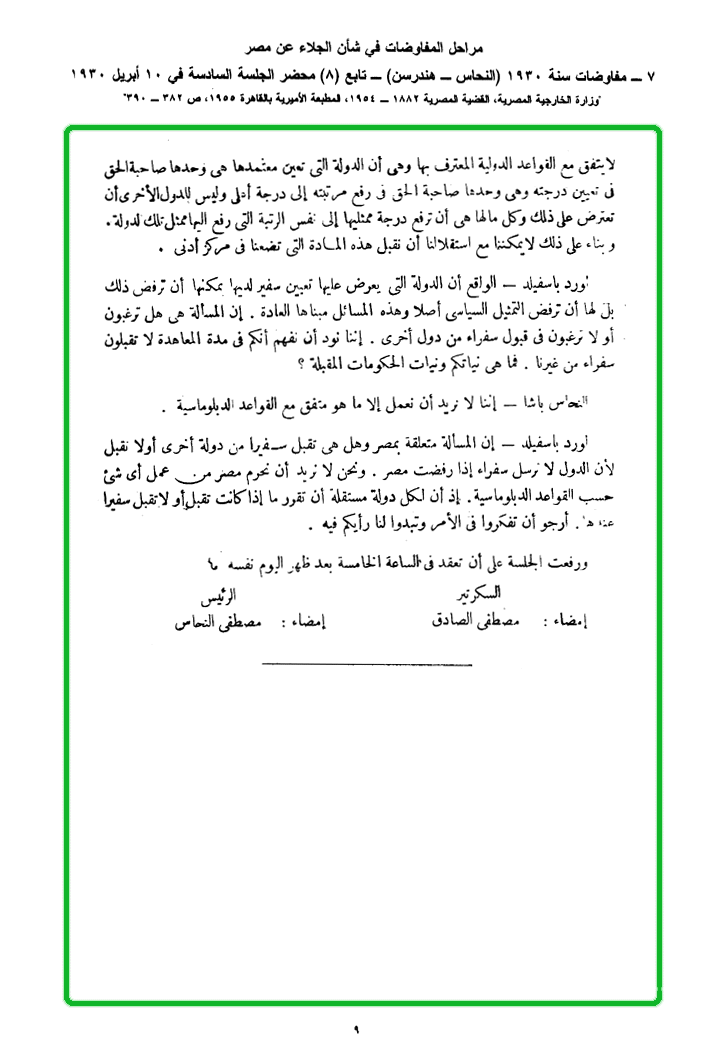 مراحل المفاوضات في شأن الجلاء عن مصر
٧ ــ مفاوضات سنة ١٩٣٠ (النحاس ــ هندرسن) ــ تابع (٨) محضر الجلسة السادسة في ١٠ أبريل ١٩٣٠
"وزارة الخارجية المصرية، القضية المصرية ١٨٨٢ ــ ١٩٥٤، المطبعة الأميرية بالقاهرة ١٩٥٥، ص ٣٨٢ ــ ٣٩٠"
لايتفق مع القواعد الدولية المعترف بها وهى أن الدولة التى تعين معتمدها هى وحدها صاحبة الحق
فى تعيين درجته وهى وحدها صاحبة الحق فى رفع مرتبته إلى درجة أعلى وليس للدول الأخرى أن
تعترض على ذلك وكل مالها هى أن ترفع درجة ممثليها إلى نفس الرتبة التى رفع اليها ممثل تلك الدولة.
وبناء على ذلك لايمكننا مع استقلالنا أن نقبل هذه المادة التى تضعنا فى مركز أدنى .
لورد باسفيلد — الواقع أن الدولة التى يعرض عليها تعيين سفير لديها يمكنها أن ترفض ذلك
بل لها أن ترفض التمثيل السياسى أصلا وهذه المسائل مبناها العادة . إن المسألة هى هل ترغبون
أو لا ترغبون فى قبول سفراء من دول أخرى . إننا نود أن نفهم أنكم فى مدة المعاهدة لا تقبلون
سفراء من غيرنا . فما هى نياتكم ونيات الحكومات المقبلة ؟
النحاس باشا — إننا لا نريد أن نعمل إلا ما هو متفق مع القواعد الدبلوماسية .
لورد باسفيلد — إن المسألة متعلقة بمصر وهل هى تقبل سفيرا من دولة أخرى أولا تقبل
لأن الدول لا ترسل سفراء إذا رفضت مصر . ونحن لا نريد أن نحرم مصر من عمل أى شئ
حسب القواعد الدبلوماسية. إذ أن لكل دولة مستقلة أن تقرر ما إذا كانت تقبل أو لا تقبل سفيرا
عندها. أرجو أن تفكروا فى الأمر وتبدوا لنا رأيكم فيه .
ورفعت الجلسة على أن تعقد فى الساعة الخامسة بعد ظهر اليوم نفسه
السكرتير الرئيس
إمضاء : مصطفى الصادق إمضاء : مصطفى النحاس
٩